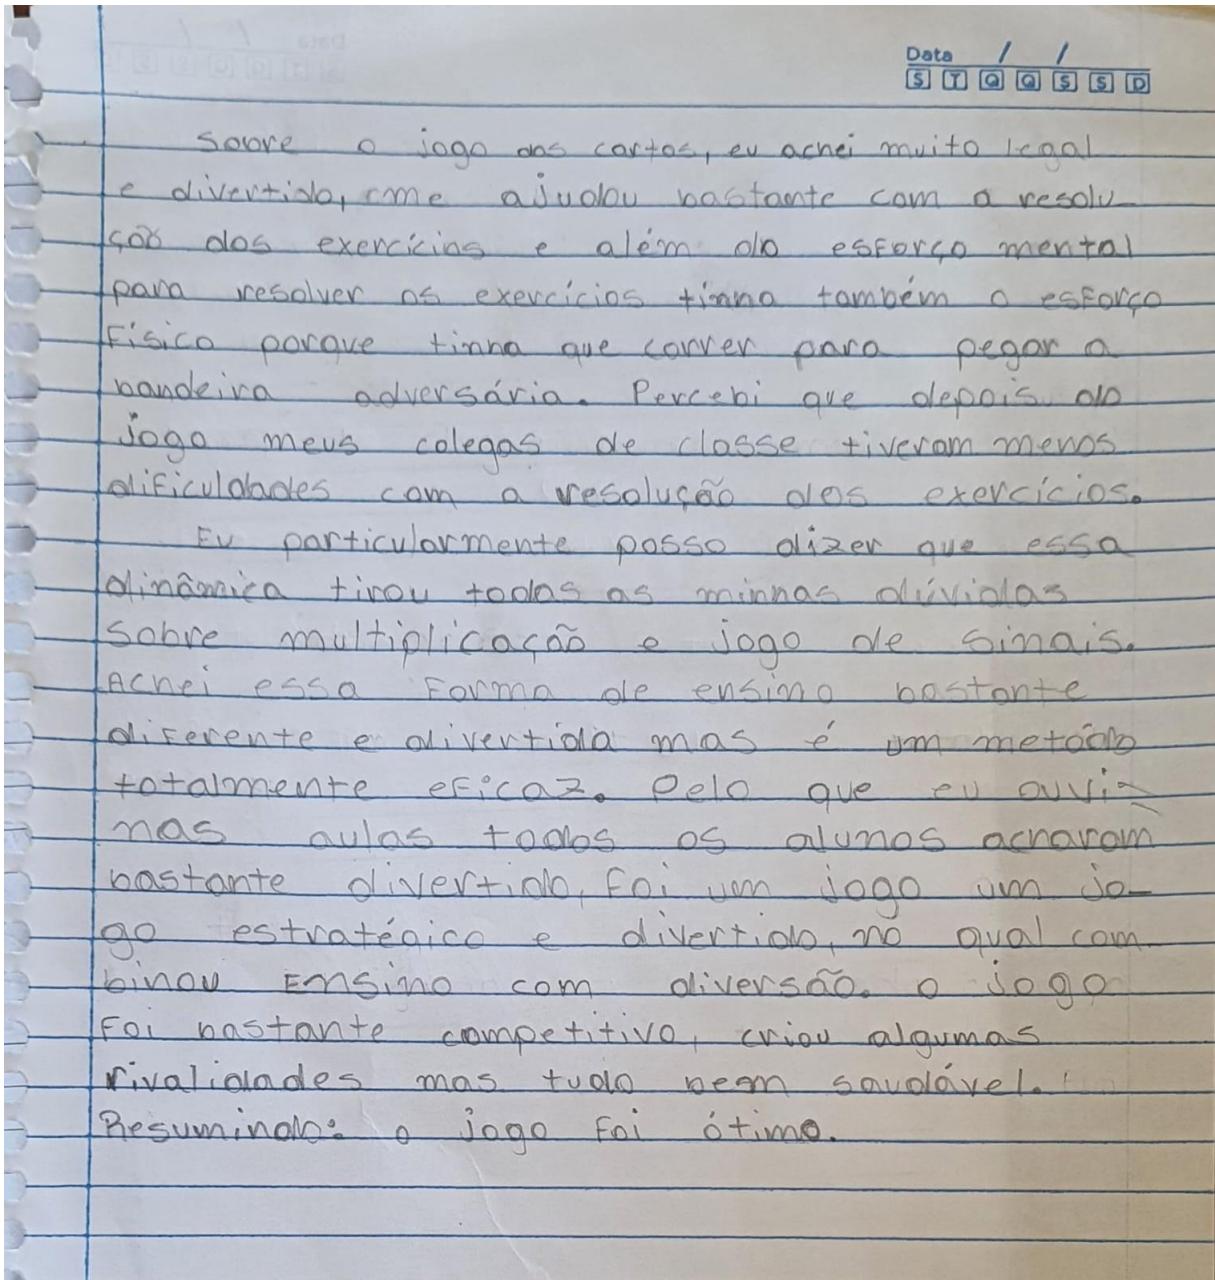 Data / /
S T Q Q S S D
Sobre o jogo das cartas, eu achei muito legal
e divertido, me ajudou bastante com a resolu
ção dos exercícios e além do esforço mental
para resolver os exercícios tinha também o esforço
Físico porque tinha que correr para pegar a
bandeira adversária. Percebi que depois do
jogo meus colegas de classe tiveram menos
dificuldades com a resolução dos exercícios.
Eu particularmente posso dizer que essa
dinâmica tirou todas as minhas dúvidas
sobre multiplicação e jogo de sinais.
Achei essa forma de ensino bastante
diferente e divertida mas é um metodo
totalmente eficaz. Pelo que eu ouvi
nas aulas todos os alunos acharam
bastante divertido, Foi um jogo um jo-
go estratégico e divertido, no qual com-
binou Ensino com diversão. o jogo
Foi bastante competitivo, criou algumas
rivalidades mas tudo bem saudável.
Resumindo: o jogo foi ótimo.